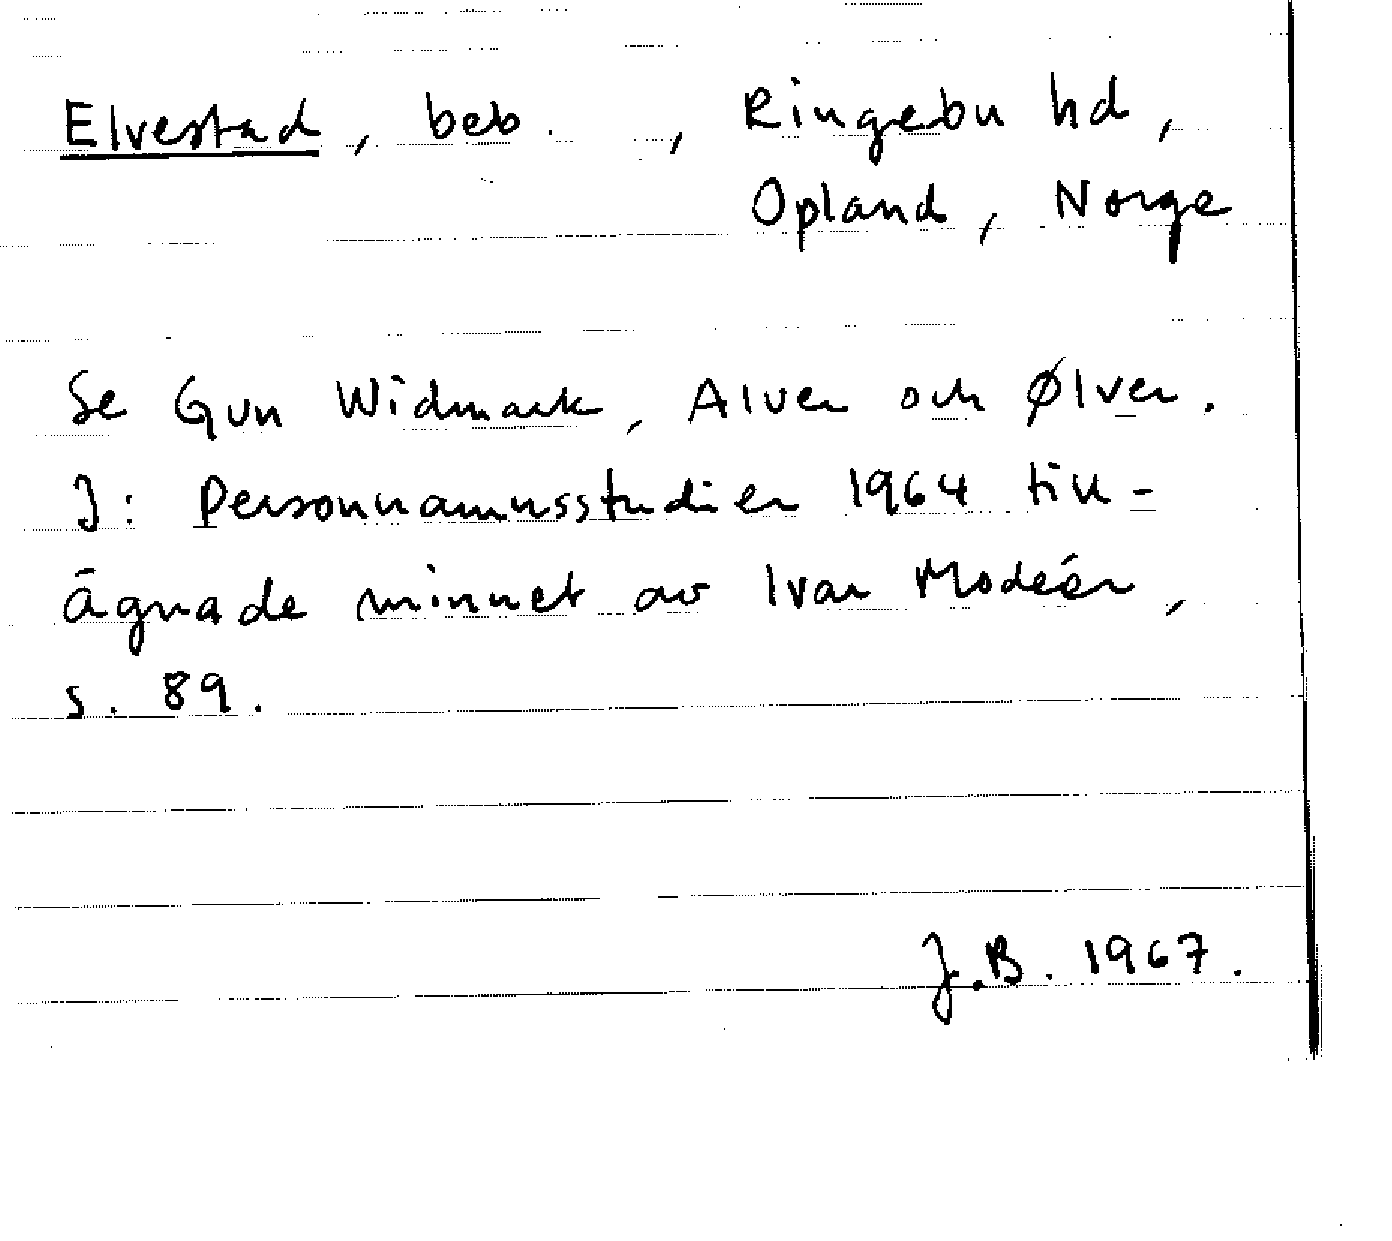 Elvestad, beb. , Ringebu hd,
Opland, Norge
Se Gun Widmark, Alver och Ølver.
I: Personnamnsstudier 1964 till-
ägnade minnet av Ivar Modéer,
s. 89.
J.B. 1967.